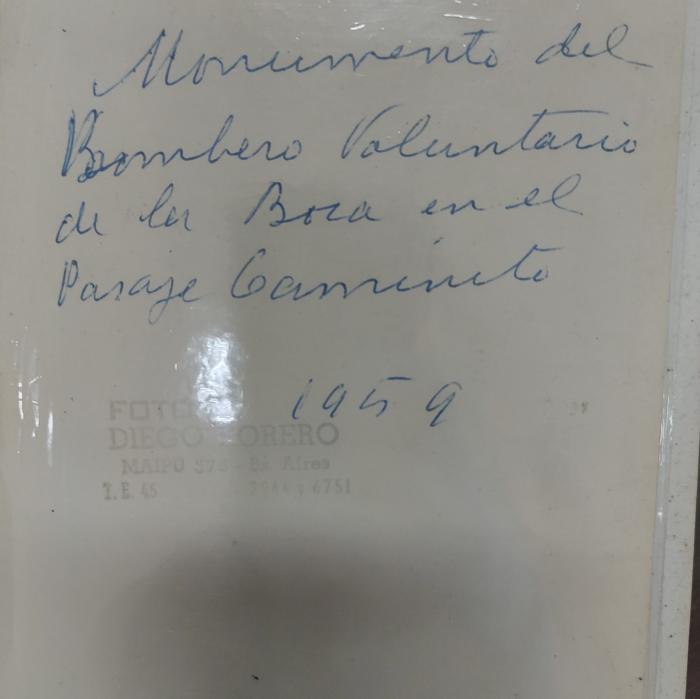 Monumento del
Bombero Voluntario
de la Boca en el
Pasaje Caminito
1959
FOTO
DIEGO
MAIPU - Bs. Aires
T.E. 45 y 6751